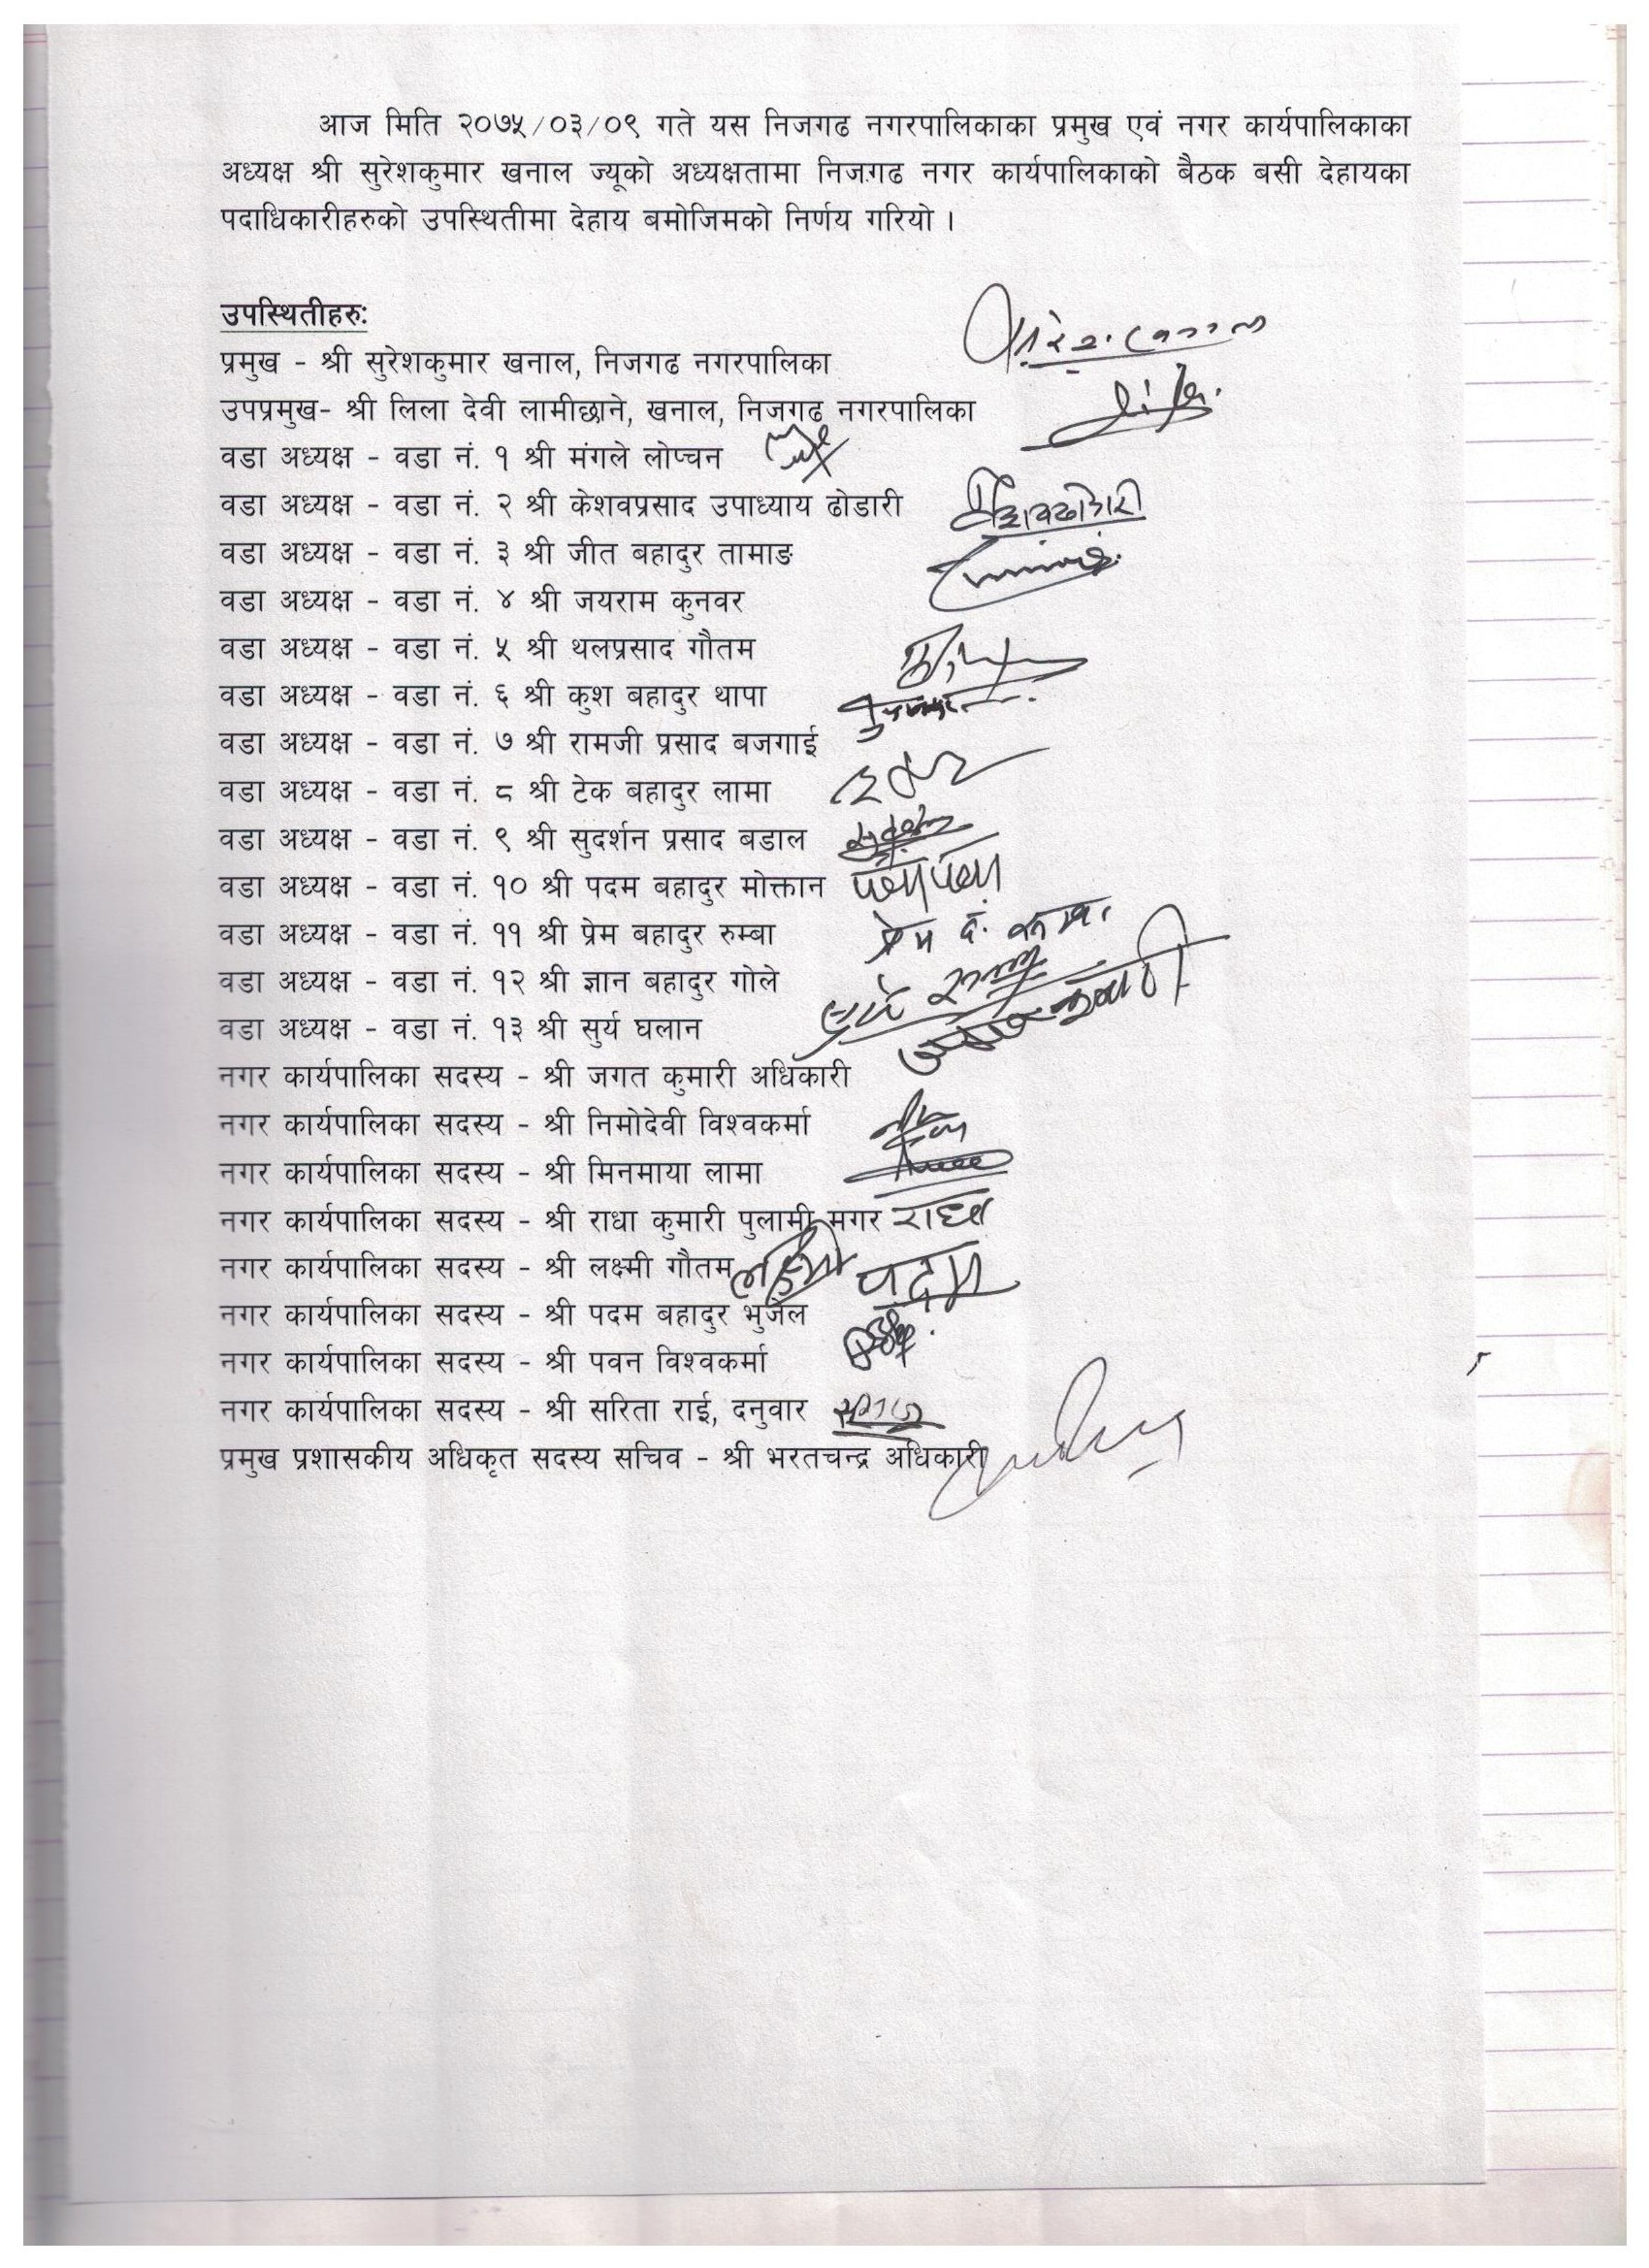 आज मिति २०७५/०३/०९ गते यस निजगढ नगरपालिकाका प्रमुख एवं नगर कार्यपालिकाका
अध्यक्ष श्री सुरेशकुमार खनाल ज्यूको अध्यक्षतामा निजगढ नगर कार्यपालिकाको बैठक बसी देहायका
पदाधिकारीहरुको उपस्थितीमा देहाय बमोजिमको निर्णय गरियो ।
उपस्थितीहरुः
प्रमुख - श्री सुरेशकुमार खनाल, निजगढ नगरपालिका
उपप्रमुख- श्री लिला देवी लामीछाने, खनाल, निजगढ नगरपालिका
वडा अध्यक्ष - वडा नं. १ श्री मंगले लोप्चन
वडा अध्यक्ष - वडा नं. २ श्री केशवप्रसाद उपाध्याय ढोडारी
वडा अध्यक्ष - वडा नं. ३ श्री जीत बहादुर तामाङ
वडा अध्यक्ष - वडा नं. ४ श्री जयराम कुनवर
वडा अध्यक्ष - वडा नं. ५ श्री थलप्रसाद गौतम
वडा अध्यक्ष - वडा नं. ६ श्री कुश बहादुर थापा
वडा अध्यक्ष - वडा नं. ७ श्री रामजी प्रसाद बजगाई
वडा अध्यक्ष - वडा नं. ८ श्री टेक बहादुर लामा
वडा अध्यक्ष - वडा नं. ९ श्री सुदर्शन प्रसाद बडाल
वडा अध्यक्ष - वडा नं. १० श्री पदम बहादुर मोक्तान
वडा अध्यक्ष - वडा नं. ११ श्री प्रेम बहादुर रुम्बा
वडा अध्यक्ष - वडा नं. १२ श्री ज्ञान बहादुर गोले
वडा अध्यक्ष - वडा नं. १३ श्री सुर्य घलान
नगर कार्यपालिका सदस्य - श्री जगत कुमारी अधिकारी
नगर कार्यपालिका सदस्य - श्री निमोदेवी विश्वकर्मा
नगर कार्यपालिका सदस्य - श्री मिनमाया लामा
नगर कार्यपालिका सदस्य - श्री राधा कुमारी पुलामी मगर राधा
नगर कार्यपालिका सदस्य - श्री लक्ष्मी गौतम लक्ष्मी
नगर कार्यपालिका सदस्य - श्री पदम बहादुर भुजेल पदम
नगर कार्यपालिका सदस्य - श्री पवन विश्वकर्मा
नगर कार्यपालिका सदस्य - श्री सरिता राई, दनुवार
प्रमुख प्रशासकीय अधिकृत सदस्य सचिव - श्री भरतचन्द्र अधिकारी